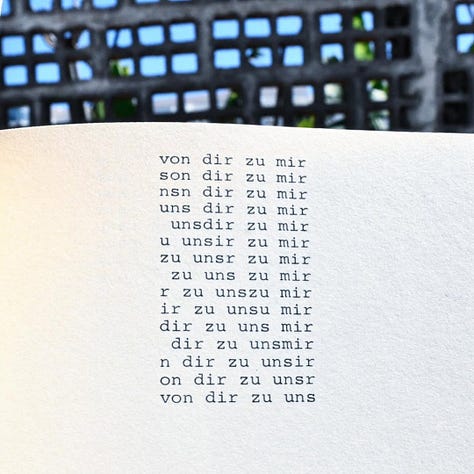 von dir zu mir
son dir zu mir
nsn dir zu mir
uns dir zu mir
 unsdir zu mir
u unsir zu mir
zu unsr zu mir
 zu uns zu mir
r zu unszu mir
ir zu unsu mir
dir zu uns mir
 dir zu unsmir
n dir zu unsir
on dir zu unsr
von dir zu uns